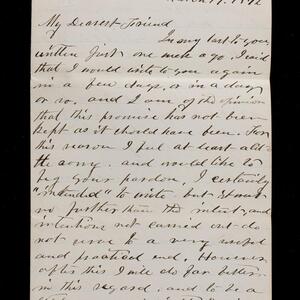 March 17, 1892
My Dearest Friend
In my last to you,
written just one week ago, I said
that I would write to you again
in a few days, or in a day
or so. and I am of the opinion
that this promise has not been
kept as it should have been. For
this reason I feel at least a little
sorry. and would like to
beg your pardon, I certainly
"intended" to write, but it went
no further than the intent, and
intentions not carried out do
not prove to a very useful
and practical end, However
after this I will do far better
in this regard, and to be a